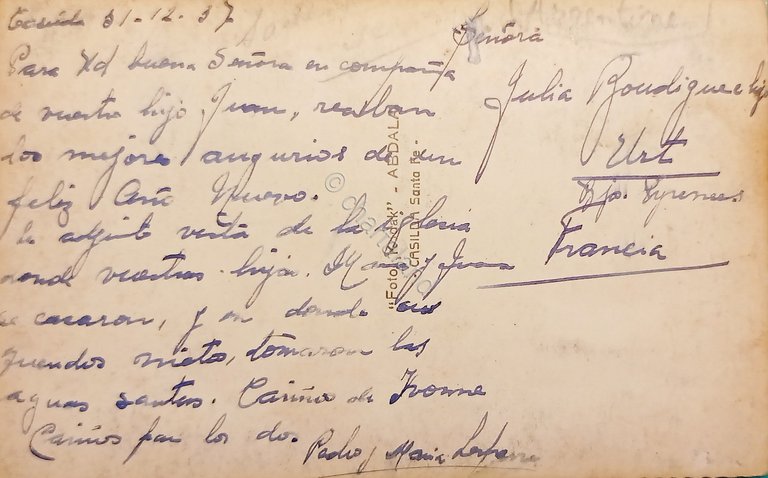 Casilda 31-12-37
Para Ud buena Señora en compañia
de vuestro hijo Juan, reciban
los mejores augurios de un
feliz Año Nuevo.
le adjunto vista de la Iglesia
donde vuestras hijas. Maria y Juana
se casaron, y en donde sus
queridos nietos, tomaron las
aguas santas. Cariños de Ivonne
Cariños para los dos.
Pedro y Maria
Señora
Julia Boudigue e hijo
Urt
Bjos. Pyrenees
Francia
"Foto Kodak" - ABDALA
- CASILDA Santa Fe -
©